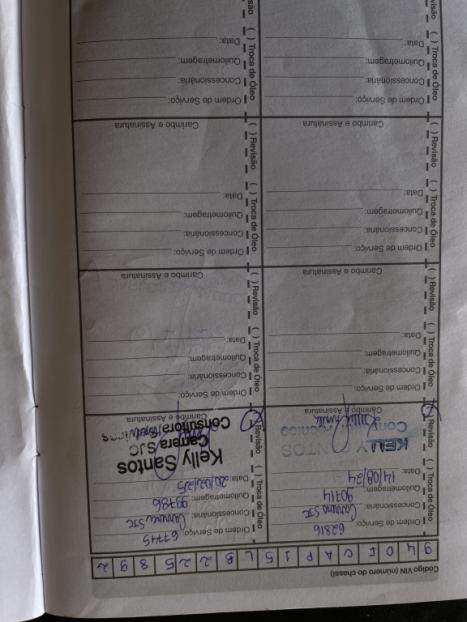 Código VIN (número do chassi)
9 4 D F C A P 1 5 L B 2 2 5 8 9 2
( ) Revisão ( ) Troca de Óleo
Ordem de Serviço: 62816
Concessionária: Carrera SJC
Quilometragem: 90114
Data: 14/08/24
KELLY SANTOS
Carimbo e Assinatura
( ) Revisão ( ) Troca de Óleo
Ordem de Serviço: 67745
Concessionária: Carrera SJC
Quilometragem: 99786
Data: 20/02/25
Kelly Santos
Carrera SJC
Consultora Serviços
Carimbo e Assinatura
( ) Revisão ( ) Troca de Óleo
Ordem de Serviço:
Concessionária:
Quilometragem:
Data:
Carimbo e Assinatura
( ) Revisão ( ) Troca de Óleo
Ordem de Serviço:
Concessionária:
Quilometragem:
Data:
Carimbo e Assinatura
( ) Revisão ( ) Troca de Óleo
Ordem de Serviço:
Concessionária:
Quilometragem:
Data:
Carimbo e Assinatura
( ) Revisão ( ) Troca de Óleo
Ordem de Serviço:
Concessionária:
Quilometragem:
Data:
Carimbo e Assinatura
( ) Revisão ( ) Troca de Óleo
Ordem de Serviço:
Concessionária:
Quilometragem:
Data:
( ) Revisão ( ) Troca de Óleo
Ordem de Serviço:
Concessionária:
Quilometragem:
Data: